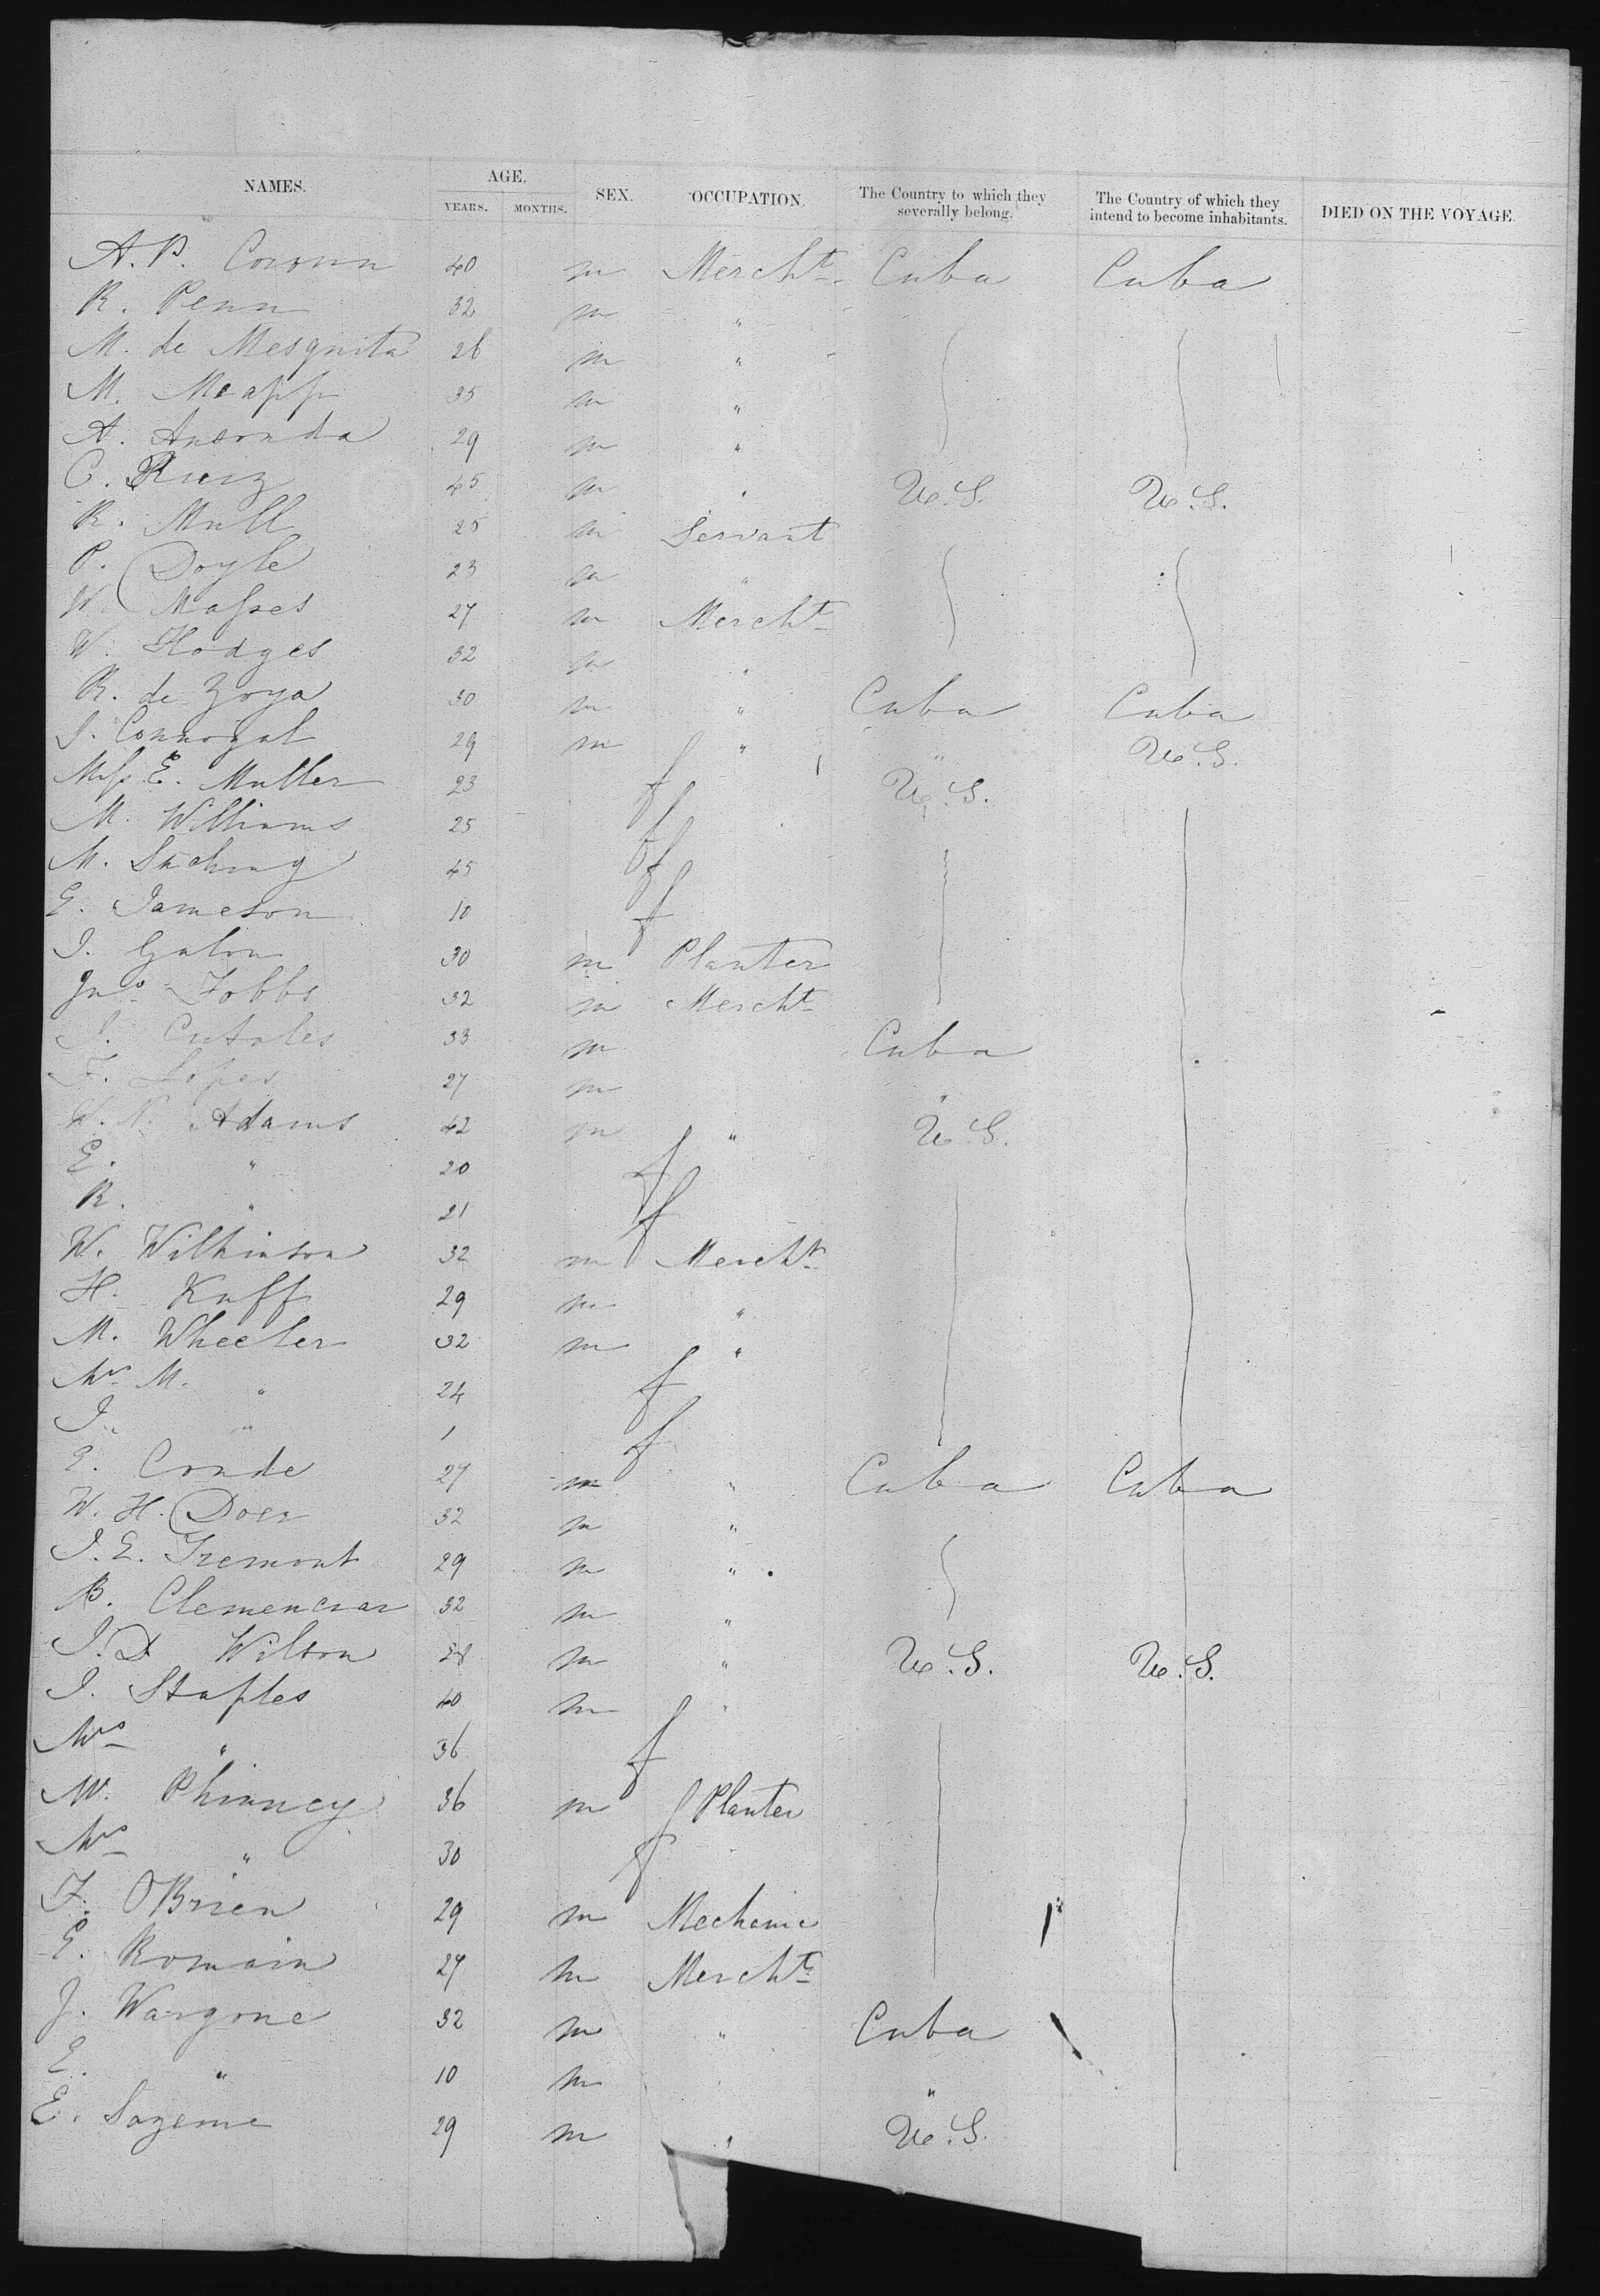 NAMES. AGE. SEX. OCCUPATION. The Country to which they severally belong. The Country of which they intend to become inhabitants. DIED ON THE VOYAGE.
YEARS. MONTHS.
A. P. 40 m Mercht. Cuba Cuba
R. Penn 32 m "
M. de Mesquita 26 m "
M. 35 m "
A. 29 m "
C. Ruiz 45 m " U.S. U.S.
R. Mull 25 m Servant
P. Doyle 23 m "
W. 27 m Mercht
W. Hodges 32 m "
R. de Zoya 30 m " Cuba Cuba
29 m " " U.S.
Miss E. Muller 23 f U.S.
M. Williams 25 f
M. 45 f
E. Jameson 10 f
30 m Planter
Jno 32 m Mercht
33 m Cuba
F. Lopes 27 m "
W. N. Adams 42 m " U.S.
E. " 20 f
R. " 21 f
W. Wilkinson 32 m Mercht
H. Kuff 29 m "
M. Wheeler 32 m "
Mrs M. " 24 f
J. " 1 f
E. Conde 27 m " Cuba Cuba
W. H. Doer 32 m "
J. E. Tremont 29 m "
32 m "
J. D. Wilson 28 m " U.S. U.S.
J. Staples 40 m "
Mrs " 36 f
W. Phinney 36 m Planter
Mrs " 30 f
F. O'Brien 29 m Mechanic
E. Romain 27 m Mercht
J. Wargone 32 m " Cuba
E. " 10 m "
E. 29 m " U.S.